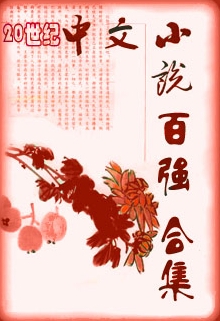 20世纪
中文小
说百强合集